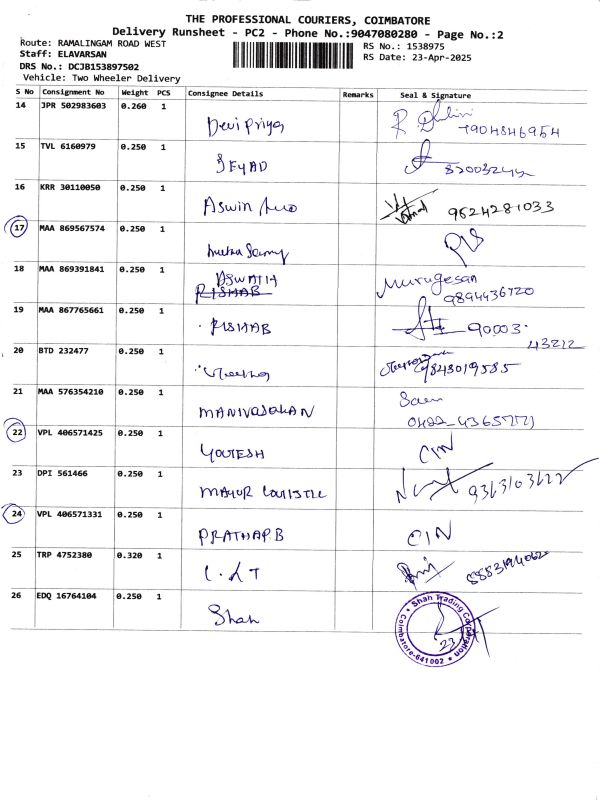 THE PROFESSIONAL COURIERS, COIMBATORE
Delivery Runsheet - PC2 - Phone No.:9047080280 - Page No.:2
Route: RAMALINGAM ROAD WEST
RS No.: 1538975
Staff: ELAVARSAN
RS Date: 23-Apr-2025
DRS No.: DCJB153897502
Vehicle: Two Wheeler Delivery
S No Consignment No Weight PCS Consignee Details Remarks Seal & Signature
14 JPR 502983603 0.260 1
Devi Priya
7904846954
15 TVL 6160979 0.250 1
SEYAD
16 KRR 30110050 0.250 1
Aswin
9524281033
17 MAA 869567574 0.250 1
18 MAA 869391841 0.250 1
ASWATH
RISHAB
Murugesan
9894436720
19 MAA 867765661 0.250 1
RISHAB
90003
43212
20 BTD 232477 0.250 1
9843019585
21 MAA 576354210 0.250 1
MANIVASAKAN
22 VPL 406571425 0.250 1
YOGESH
CIN
23 DPI 561466 0.250 1
MAYUR
24 VPL 406571331 0.250 1
PRATHAP.B
CIN
25 TRP 4752380 0.320 1
L.&T
26 EDQ 16764104 0.250 1
Shah
Shah Trading Corporation
Coimbatore-641002
23